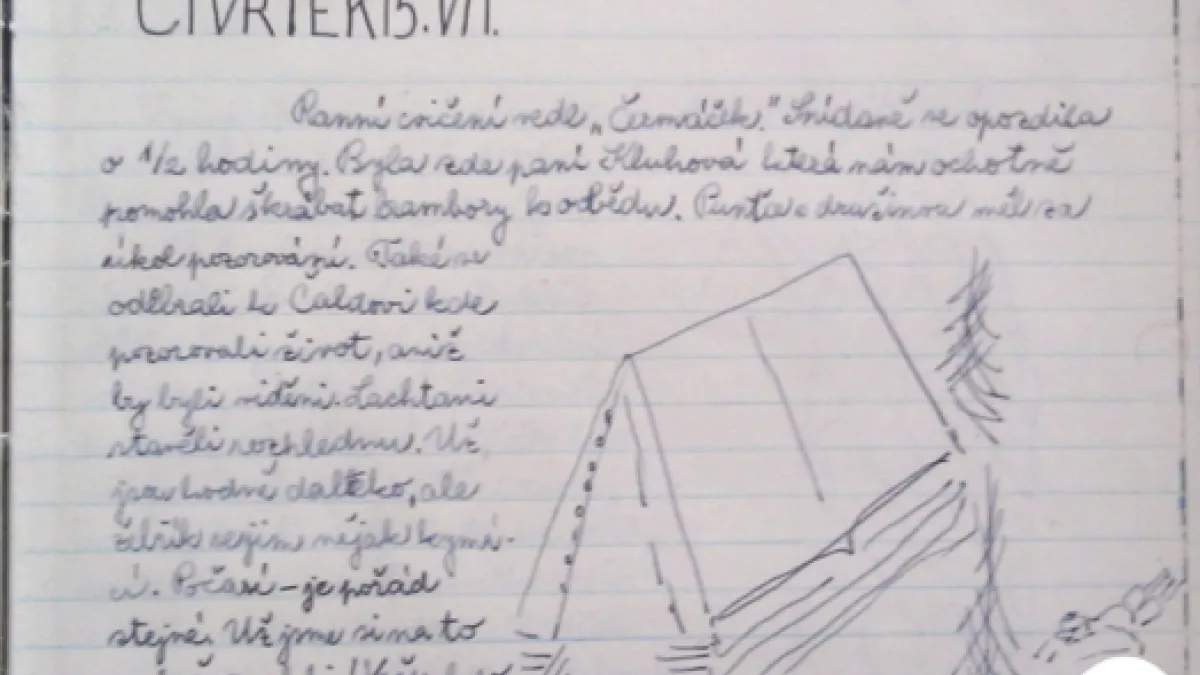 ČTVRTEK 15. VII.
Ranní cvičení vedl „Čermáček." Snídaně se opozdila
o 1/2 hodiny. Byla zde paní Kluhová která nám ochotně
pomohla škrábat brambory k obědu. Punťa a družinou měl za
úkol pozorování. Také se
odebrali k Čaldovi kde
pozorovali život, aniž
by byli viděni. Lachtani
stavěli rozhlednu. Už
jsou hodně daleko, ale
žebřík se jim nějak kymá-
cí. Počasí – je pořád
stejné. Už jsme si na to